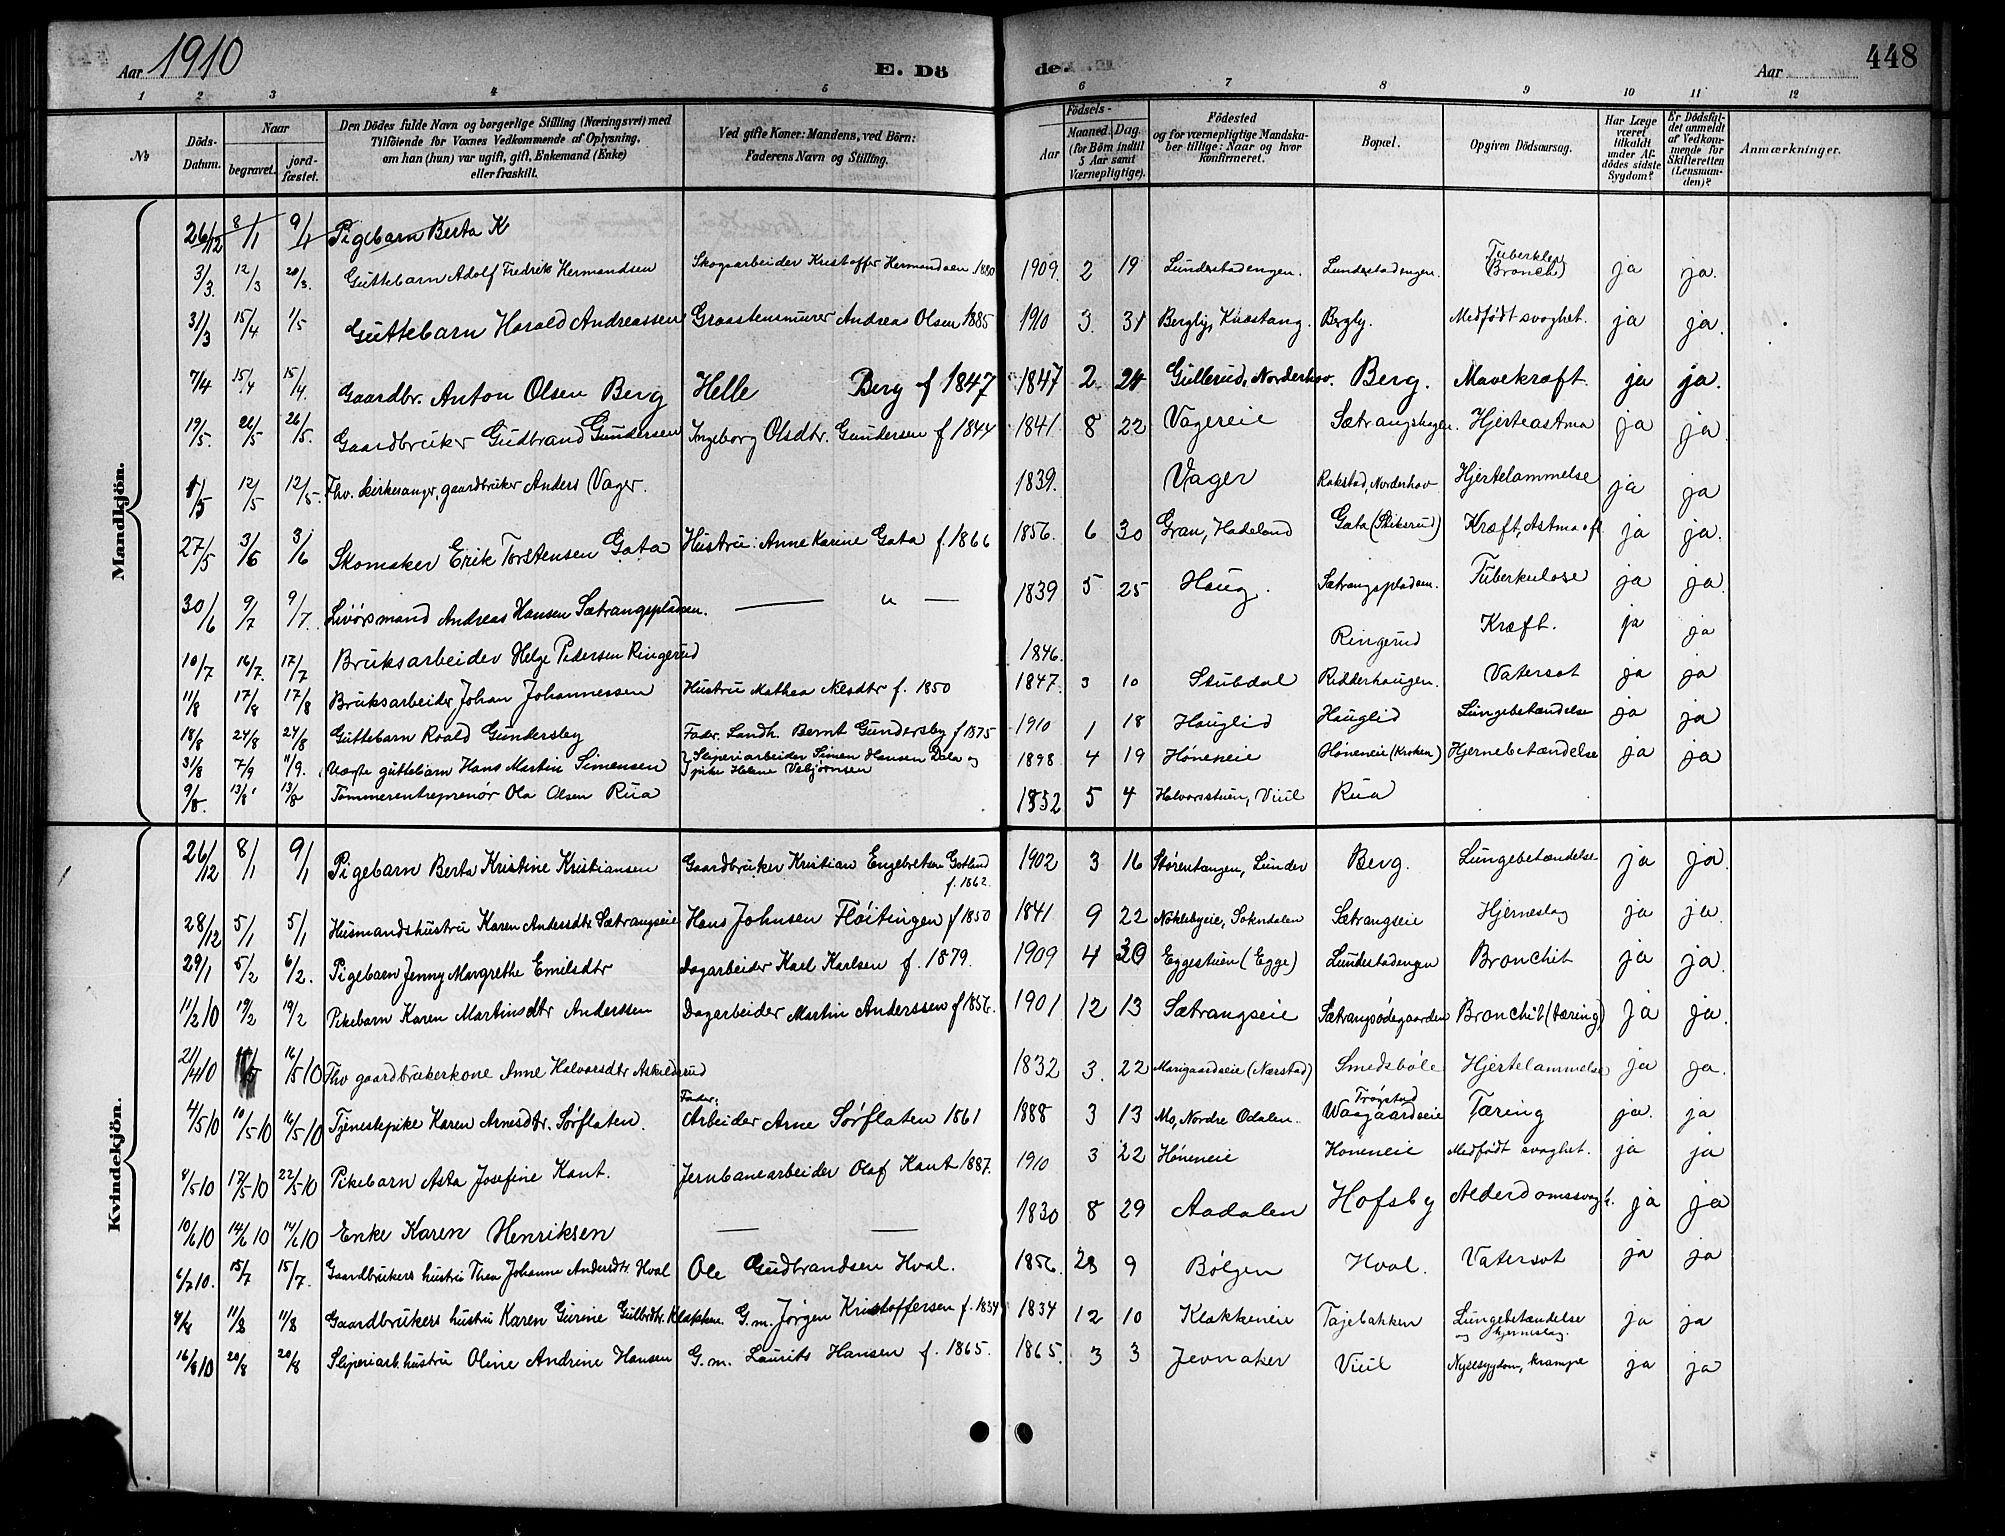 Aar 1910 E. Dö
de. Aar 448
1 2 3 4 5 6 7 8 9 10 11 12
№
Döds-Datum.
Naar
begravet.
jord-fæstet.
Den Dödes fulde Navn og borgerlige Stilling (Næringsvei) med Tilföiende for Voxnes Vedkommende af Oplysning, om han (hun) var ugift, gift, Enkemand (Enke) eller fraskilt.
Ved gifte Koner: Mandens, ved Börn: Faderens Navn og Stilling.
Födsels-
Aar
Maaned. Dag.
(for Börn indtil 5 Aar samt Værnepligtige).
Födested og for værnepligtige Mandskaber tillige: Naar og hvor Konfirmeret.
Bopæl.
Opgiven Dödsaarsag.
Har Læge været tilkaldt under Afdödes sidste Sygdom?
Er Dödsfaldet anmeldt af Vedkommende for Skifteretten (Lensmanden)?
Anmærkninger.
Mandkjön.
26/12 8/1 9/1 Pigebarn Berta K
3/3. 12/3 20/3. Guttebarn Adolf Fredrik Hermandsen Skogsarbeider Kristoffer Hermandsen 1880 1909. 2 19 Lundestadengen. Lundestadengen. Tuberklos Bronch) ja ja.
31/3 15/4 1/5 Guttebarn Harald Andreassen Graastensmurer Andreas Olsen 1885 1910 3. 31 Bergly, Knostang. Bergly. Medfødt svaghet. ja ja.
7/4 15/4 15/4. Gaardbr. Anton Olsen Berg Helle Berg f 1847 1847 2 24 Gullerud, Norderhov. Berg. Mavekræft. ja ja.
19/5. 26/5 26/5. Gaardbruker Gudbrand Gundersen Ingeborg Olsdtr. Gundersen f 1844 1841 8 22 Vagereie Sætrangshagen. Hjerteastma ja ja.
1/5 12/5 12/5. Fhv. kirkesanger, gaardbruker Anders Vager. 1839. Vager Rakstad, Norderhov Hjertelammelse ja ja
27/5 3/6 3/6 Skomaker Erik Torstensen Gata Hustru: Anne Karine Gata f. 1866 1856. 6 30 Gran, Hadeland Gata (Skikerud) Kræft, Astma ja ja.
30/6 9/7 9/7. Livørsmand Andreas Hansen Sætrangspladsen. — " — 1839 5 25 Haug. Sætrangspladsen. Tuberkulose ja ja.
10/7 16/7. 17/7 Bruksarbeider Helge Pedersen Ringerud 1846. Ringerud Kræft. ja ja
11/8 17/8 17/8 Bruksarbeider Johan Johannessen Hustru Mathea Nilsdtr f. 1850 1847. 3 10 Skubdal Ridderhaugen. Vatersot ja ja
18/8 24/8 24/8 Guttebarn Roald Gundersby Fader. Landh. Bernt Gundersby f 1875 1910 1 18 Hauglid Hauglid Lungebetændelse ja ja
31/8 7/9 11/9. Uægte guttebarn Hans Martin Simensen Sliperiarbeider Simen Hansen Dala og pike Helene Vebjørnsen 1898 4 19 Høneneie Høneneie (Kroken) Hjernebetændelse ja ja
9/8. 13/8 13/8 Tømmerentreprenør Ola Olsen Rua 1852 5 4 Halvorsstuen, Viul Rua
Kvindekjön.
26/12 8/1 9/1 Pigebarn Berta Kristine Kristiansen Gaardbruker Kristian Engebretsen Gotlund f. 1862. 1902 3 16 Størentangen, Lunder Berg. Lungebetændelse ja ja.
28/12 5/1 5/1 Husmandshustru Karen Andersdtr Sætrangseie Hans Johnsen Fløitingen f 1850 1841 9 22 Noklebyeie, Sokndalen Sætrangseie Hjerneslag ja ja.
29/1 5/2 6/2. Pigebarn Jenny Margrethe Emilsdtr Dagarbeider Karl Karlsen f. 1879. 1909 4 30 Eggestuen (Egge) Lundestadengen Bronchit ja ja.
11/2 10 19/2 19/2 Pikebarn Karen Martinsdtr Anderssen Dagarbeider Martin Anderssen f 1856. 1901 12 13 Sætrangseie Sætrangsødegaarden Bronchit (tæring) ja ja.
21/4 10 16/5 10 Fhv gaardbrukerkone Anne Halvorsdtr Askildsrud 1832 3. 22 Marigaardseie (Nærstad) Smedsbøle Hjertelammelse ja ja.
4/5 10 10/5 10 16/5 10 Tjenestepike Karen Arnesdtr. Sørflaten. Fader: Arbeider Arne Sørflaten 1861 1888 3 13 Mo, Nordre Odalen. Trøgstad Vaagaardseie Tæring ja. ja
4/5 10 17/5 10 22/5 10 Pikebarn Asta Josefine Kant. Jernbanearbeider Olaf Kant 1887. 1910 3 22 Høneneie Høneneie Medfødt svaghet. ja ja
10/6 10 14/6 10 14/6 10 Enke Karen Henriksen — — 1830 8 29 Aadalen Hofsby Alderdomssvagh. ja ja
6/7 10. 15/7 15/7. Gaardbrukers hustru Thea Johanne Andersdtr. Hval Ole Gudbrandsen Hval. 1856. 9 Bølgen Hval. Vatersot ja ja
4/8 11/8 11/8 Gaardbrukers hustru Karen Gurine Gulbrdtr. Klækken. G. m. Jørgen Kristoffersen f. 1834 1834 12 10 Klækkeneie Tajebakken Lungebetændelse og hjerneslag. ja ja
16/8 10 20/8 20/8 Sliperiarb. hustru Oline Andrine Hansen G. m. Laurits Hansen f. 1865. 1865. 3 3 Jevnaker Viul Nyresygdom, krampe ja ja